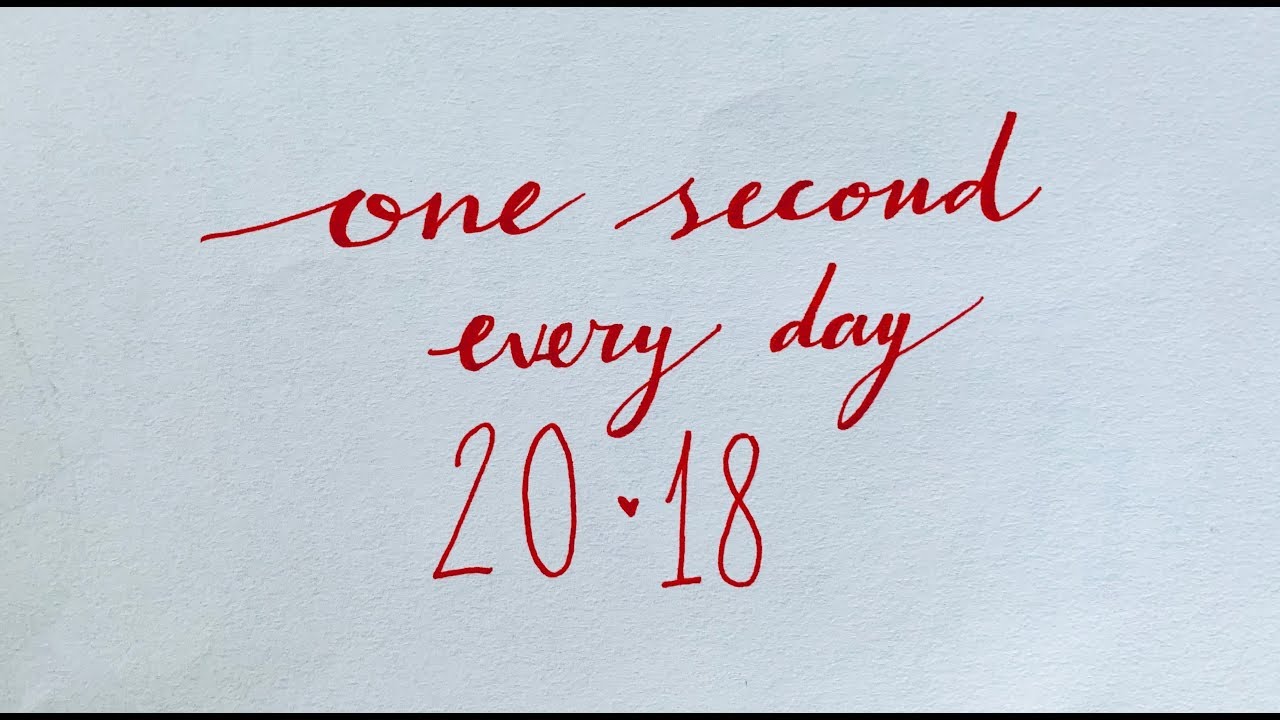 one second
every day
20♥18